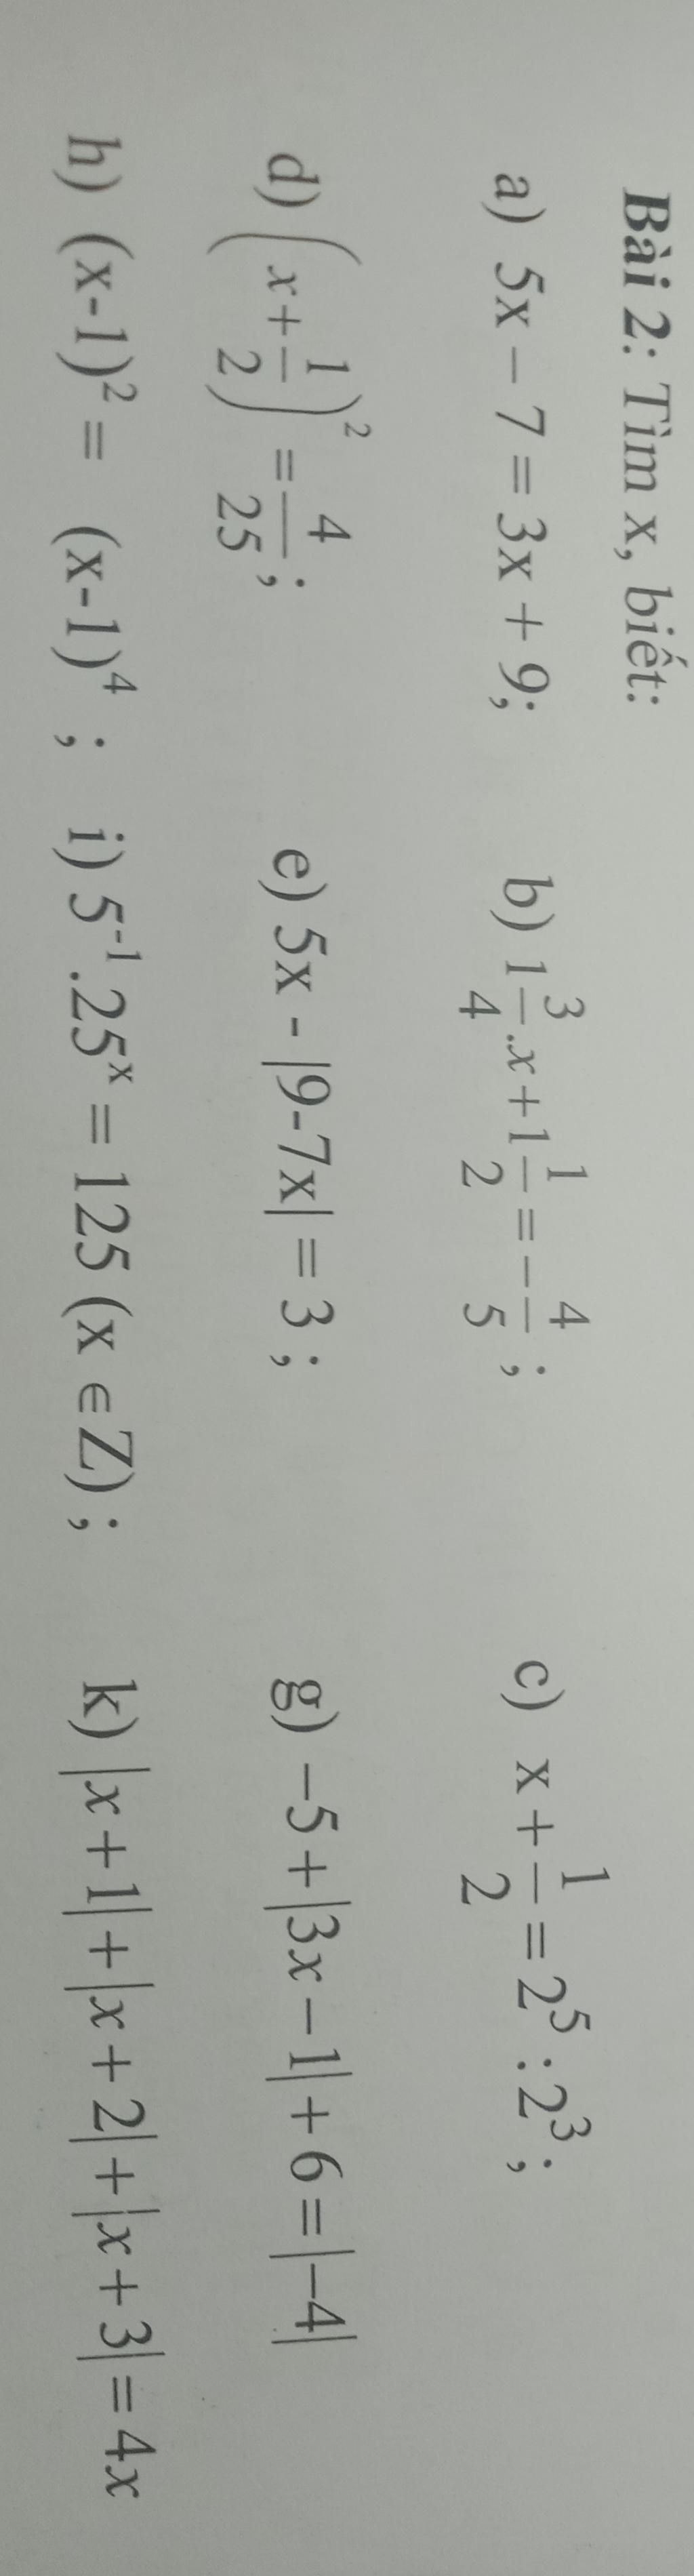 Bài 2: Tìm x, biết:
a) 5x – 7 = 3x + 9; b) 1 3/4 .x + 1 1/2 = – 4/5 ; c) x + 1/2 = 2⁵ : 2³ ;
d) (x + 1/2)² = 4/25 ; e) 5x - |9-7x| = 3 ; g) –5 + |3x – 1| + 6 = |–4|
h) (x-1)² = (x-1)⁴ ; i) 5⁻¹.25ˣ = 125 (x ∈ Z) ; k) |x + 1| + |x + 2| + |x + 3| = 4x